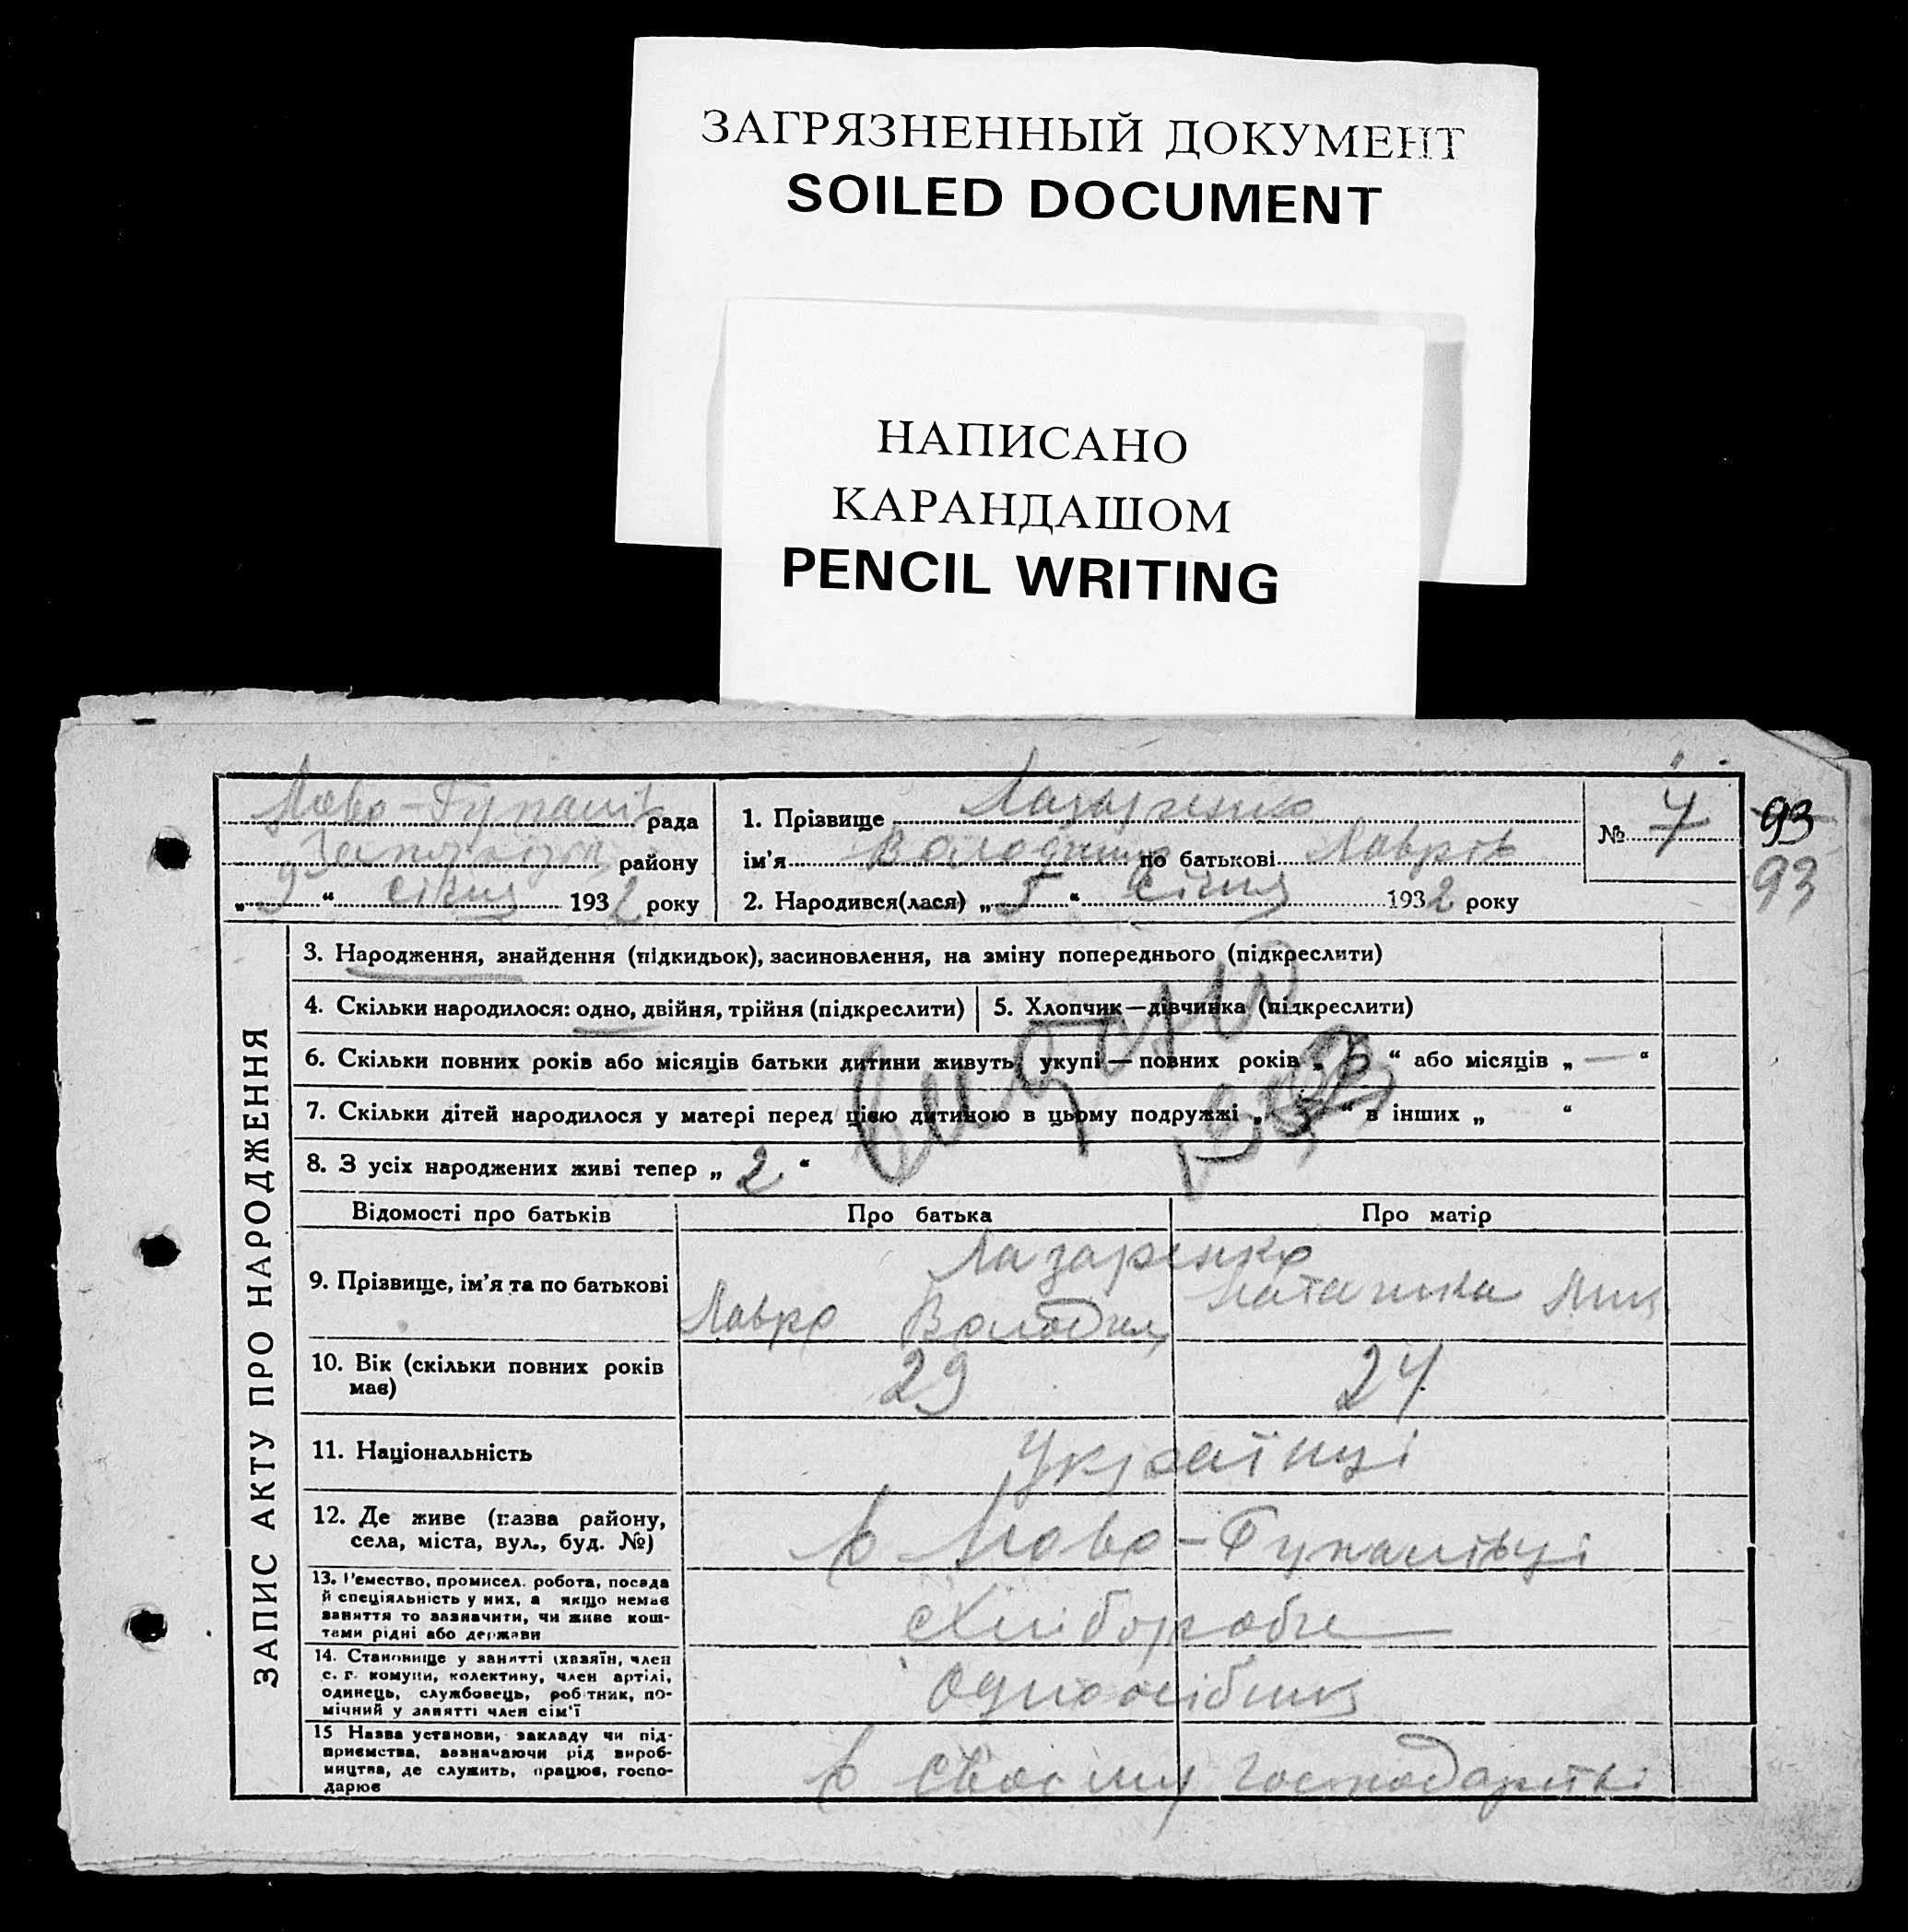 ЗАГРЯЗНЕННЫЙ ДОКУМЕНТ
SOILED DOCUMENT
НАПИСАНО
КАРАНДАШОМ
PENCIL WRITING
рада
району
„ 9 “ січня 1932 року
1. Прізвище Лазаренко
ім'я Володимир по батькові Лавров
2. Народився(лася) „ 5 “ січня 1932 року
№ 7
93
93
ЗАПИС АКТУ ПРО НАРОДЖЕННЯ
3. Народження, знайдення (підкидьок), засиновлення, на зміну попереднього (підкреслити)
4. Скільки народилося: одно, двійня, трійня (підкреслити)
5. Хлопчик—дівчинка (підкреслити)
6. Скільки повних років або місяців батьки дитини живуть укупі—повних років „ “ або місяців „ — “
7. Скільки дітей народилося у матері перед цією дитиною в цьому подружжі „ “ в інших „ “
8. З усіх народжених живі тепер „ 2 “
Відомості про батьків
Про батька
Про матір
9. Прізвище, ім'я та по батькові
Лазаренко
Лавро Володим
10. Вік (скільки повних років
має)
29
24
11. Національність
Українці
12. Де живе (назва району,
села, міста, вул., буд. №)
в Ново-Гупалівці
13. Ремество, промисел. робота, посада
й спеціяльність у них, а якщо немає
заняття то зазначити, чи живе кош-
тами рідні або держави
Хлібороби
14. Становище у занятті (хазяїн, член
с. г. комуни, колективу, член артілі,
одинець, службовець, робітник, по-
мічний у занятті член сім'ї
Одноосібник
15 Назва установи, закладу чи під-
приємства, зазначаючи рід вироб-
ництва, де служить, працює, госпо-
дарює
в своєму господарстві